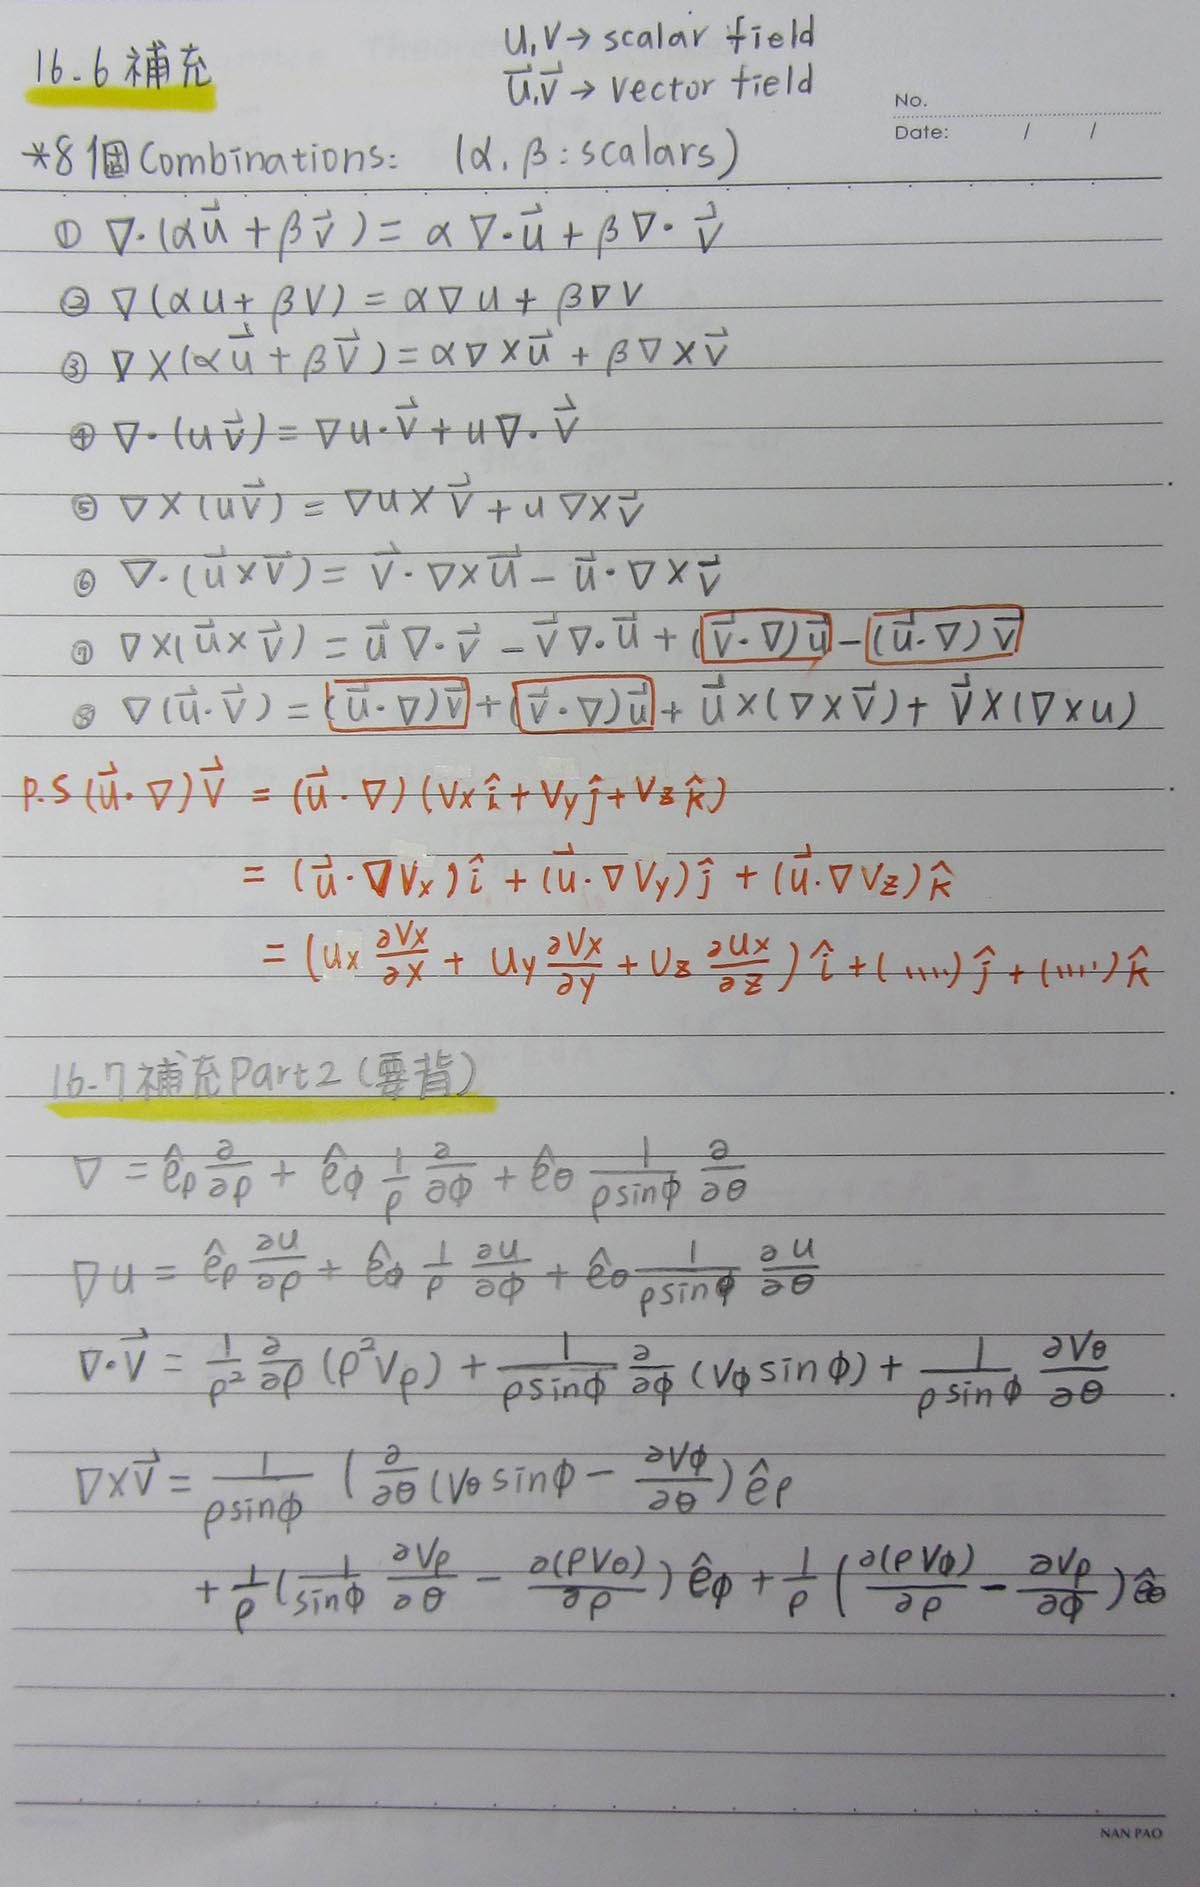 16.6 補充
u,v → scalar field
u⃗,v⃗ → vector field
No.
Date: / /
*8個Combinations: (α, β : scalars)
① ∇·(αu⃗ + βv⃗) = α∇·u⃗ + β∇·v⃗
② ∇(αu + βv) = α∇u + β∇v
③ ∇×(αu⃗ + βv⃗) = α∇×u⃗ + β∇×v⃗
④ ∇·(uv⃗) = ∇u·v⃗ + u∇·v⃗
⑤ ∇×(uv⃗) = ∇u×v⃗ + u∇×v⃗
⑥ ∇·(u⃗×v⃗) = v⃗·∇×u⃗ − u⃗·∇×v⃗
⑦ ∇×(u⃗×v⃗) = u⃗∇·v⃗ − v⃗∇·u⃗ + (v⃗·∇)u⃗ − (u⃗·∇)v⃗
⑧ ∇(u⃗·v⃗) = (u⃗·∇)v⃗ + (v⃗·∇)u⃗ + u⃗×(∇×v⃗) + v⃗×(∇×u)
P.S (u⃗·∇)v⃗ = (u⃗·∇)(Vx î + Vy ĵ + Vz k̂)
= (u⃗·∇Vx)î + (u⃗·∇Vy)ĵ + (u⃗·∇Vz)k̂
= (Ux ∂Vx/∂x + Uy ∂Vx/∂y + Uz ∂Ux/∂z)î + (.....)ĵ + (.....)k̂
16-7補充Part2(要背)
∇ = êρ ∂/∂ρ + êϕ 1/ρ ∂/∂ϕ + êθ 1/(ρsinϕ) ∂/∂θ
∇u = êρ ∂u/∂ρ + êϕ 1/ρ ∂u/∂ϕ + êθ 1/(ρsinϕ) ∂u/∂θ
∇·v⃗ = 1/ρ² ∂/∂ρ (ρ²Vρ) + 1/(ρsinϕ) ∂/∂ϕ (Vϕ sinϕ) + 1/(ρsinϕ) ∂Vθ/∂θ
∇×v⃗ = 1/(ρsinϕ) (∂/∂θ (Vθ sinϕ − ∂Vϕ/∂θ) êρ
+ 1/ρ (1/sinϕ ∂Vρ/∂θ − ∂(ρVθ)/∂ρ) êϕ + 1/ρ (∂(ρVϕ)/∂ρ − ∂Vρ/∂ϕ) êθ
NAN PAO